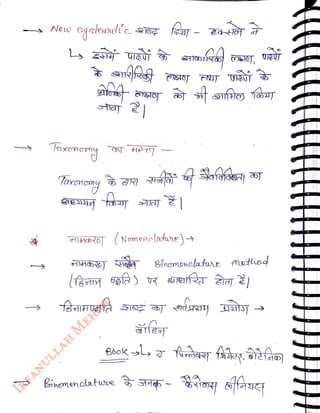 → New systematic शब्द दिया - हक्सले ने
↳ इसमें पादपों के आकारिकी लक्षण, पादपों
के शारीरिकी लक्षण तथा पादपों के
भौतिकी लक्षण को भी शामिल किया
जाता है।
→ Taxonomy का महत्व -
Taxonomy के द्वारा सजीवों की जैवविविधता का
अध्ययन किया जाता है।
* नामकरण (Nomenclature) →
→ नामकरण सदैव Binomenclature method
(द्विनाम पद्धति) पर आधारित होता है।
→ द्विनामपद्धति शब्द का सर्वप्रथम प्रयोग →
बॉहिन
Book → ↳ द पिनेक्स थियेटर बोटेनिका
→ Binomenclature के जनक - कैरोलस लीनियस
IRFANULLAH MEHR